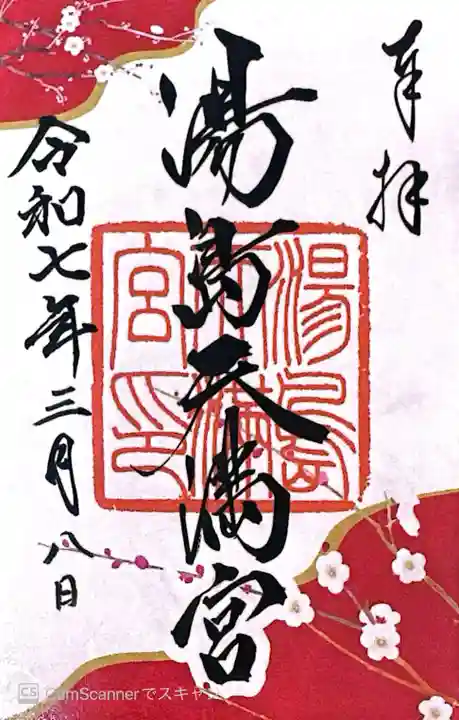 奉拝
湯島天満宮
令和七年三月八日
湯島
天満
宮印
CS CamScannerでスキャン